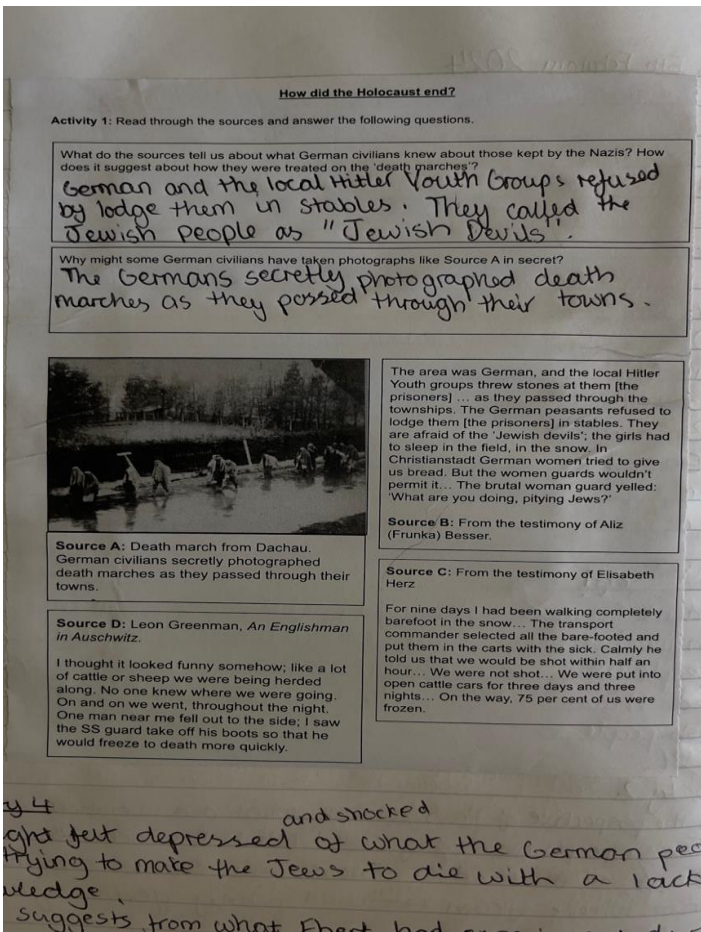 How did the Holocaust end?
Activity 1: Read through the sources and answer the following questions.
What do the sources tell us about what German civilians knew about those kept by the Nazis? How
does it suggest about how they were treated on the 'death marches'?
German and the local Hitler Youth Groups refused
by lodge them in stables. They called the
Jewish people as "Jewish Devils".
Why might some German civilians have taken photographs like Source A in secret?
The Germans secretly photographed death
marches as they passed through their towns.
Source A: Death march from Dachau.
German civilians secretly photographed
death marches as they passed through their
towns.
Source D: Leon Greenman, An Englishman
in Auschwitz.
I thought it looked funny somehow; like a lot
of cattle or sheep we were being herded
along. No one knew where we were going.
On and on we went, throughout the night.
One man near me fell out to the side; I saw
the SS guard take off his boots so that he
would freeze to death more quickly.
The area was German, and the local Hitler
Youth groups threw stones at them [the
prisoners] ... as they passed through the
townships. The German peasants refused to
lodge them [the prisoners] in stables. They
are afraid of the 'Jewish devils'; the girls had
to sleep in the field, in the snow. In
Christianstadt German women tried to give
us bread. But the women guards wouldn't
permit it... The brutal woman guard yelled:
'What are you doing, pitying Jews?'
Source B: From the testimony of Aliz
(Frunka) Besser.
Source C: From the testimony of Elisabeth
Herz
For nine days I had been walking completely
barefoot in the snow... The transport
commander selected all the bare-footed and
put them in the carts with the sick. Calmly he
told us that we would be shot within half an
hour... We were not shot... We were put into
open cattle cars for three days and three
nights... On the way, 75 per cent of us were
frozen.
4
and shocked
felt depressed of what the German
trying to make the Jews to die with a lack
suggests from what had